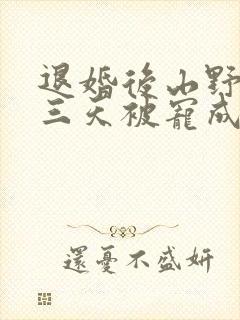 退婚後山野
三天被寵成
還憂不盛妍